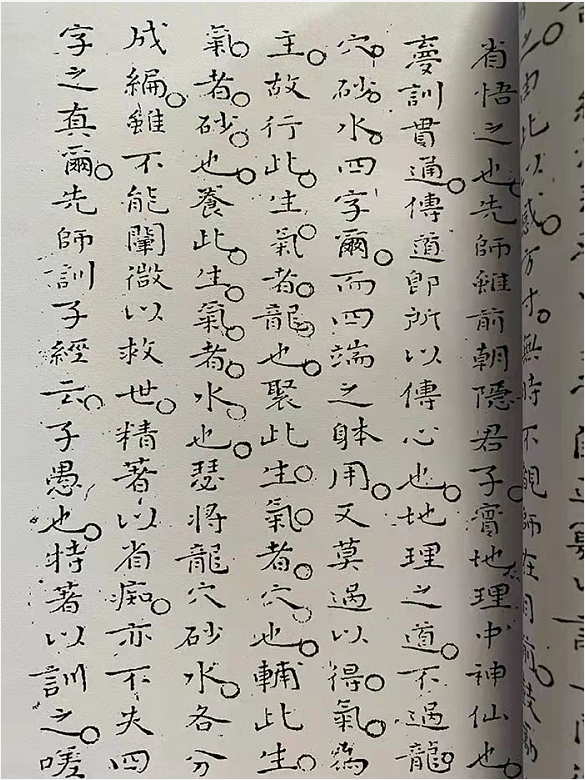 之由此以感方寸。無時不覩師在目前
省悟之也。先師雖前朝隱君子。實地理中神仙也。
夣訓貫通。傳道即所以傳心也。地理之道。不過龍。
穴。砂。水。四字爾。而四端之躰用。又莫過以得。氣。為
主。故行此。生。氣。者。龍。也。聚此。生。氣。者。穴。也。輔此。生。
氣。者。砂。也。養此。生。氣。者。水。也。瑟將龍穴砂水。各分
成編。雖不能闡微以救世。精著以省痴。亦不失四
字之真爾。先師訓子經云。子愚也。特著以訓之。